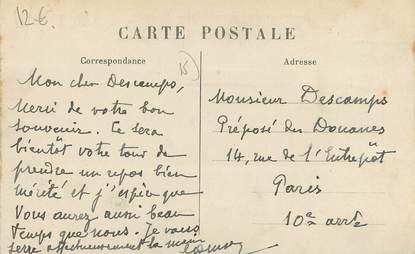 12-6.
CARTE POSTALE
Correspondance
Adresse
15
Mon cher Descamps,
Merci de votre bon
souvenir. Ce sera
bientôt votre tour de
prendre un repos bien
mérité et j'espère que
vous aurez aussi beau
temps que nous. Je vous
serre affectueusement la main
Monsieur Descamps
Préposé des Douanes
14, rue de l'Entrepôt
Paris
10e arrt